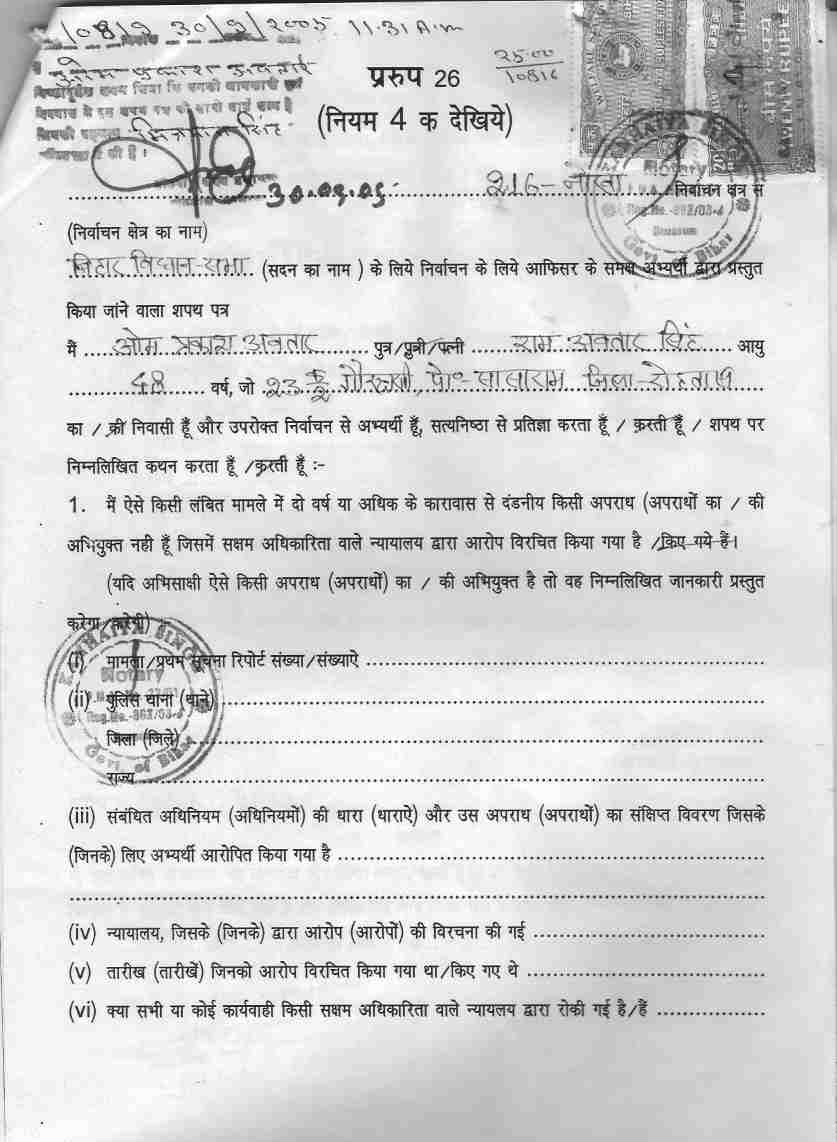 10819 30/9/2005 11.31 A.m
ओम प्रकाश अवतार
25.00
10816
प्ररुप 26
(नियम 4 क देखिये)
Notary
Reg.No.-862/03-4
Govt. of Bihar
30.09.05
216-नोखा निर्वाचन क्षेत्र से
(निर्वाचन क्षेत्र का नाम)
बिहार विधान सभा (सदन का नाम ) के लिये निर्वाचन के लिये आफिसर के समक्ष अभ्यर्थी द्वारा प्रस्तुत
किया जांने वाला शपथ पत्र
मैं ओम प्रकाश अवतार पुत्र/पुत्री/पत्नी राम अवतार सिंह आयु
48 वर्ष, जो गौरक्षणी, पो॰ सासाराम जिला-रोहतास
का / की निवासी हूँ और उपरोक्त निर्वाचन से अभ्यर्थी हूँ, सत्यनिष्ठा से प्रतिज्ञा करता हूँ / करती हूँ / शपथ पर
निम्नलिखित कथन करता हूँ /करती हूँ :-
1. मैं ऐसे किसी लंबित मामले में दो वर्ष या अधिक के कारावास से दंडनीय किसी अपराध (अपराधों का / की
अभियुक्त नही हूँ जिसमें सक्षम अधिकारिता वाले न्यायालय द्वारा आरोप विरचित किया गया है /किए गये हैं।
(यदि अभिसाक्षी ऐसे किसी अपराध (अपराधों) का / की अभियुक्त है तो वह निम्नलिखित जानकारी प्रस्तुत
करेगा/करेगी) :-
(i) मामला/प्रथम सूचना रिपोर्ट संख्या/संख्याऐ
Notary
(ii) पुलिस थाना (थाने)
Reg.No.-862/03-4
जिला (जिले)
Govt. of Bihar
राज्य
(iii) संबंधित अधिनियम (अधिनियमों) की धारा (धाराऐ) और उस अपराध (अपराधों) का संक्षिप्त विवरण जिसके
(जिनके) लिए अभ्यर्थी आरोपित किया गया है
(iv) न्यायालय, जिसके (जिनके) द्वारा आंरोप (आरोपों) की विरचना की गई
(v) तारीख (तारीखें) जिनको आरोप विरचित किया गया था/किए गए थे
(vi) क्या सभी या कोई कार्यवाही किसी सक्षम अधिकारिता वाले न्यायलय द्वारा रोकी गई है/हैं